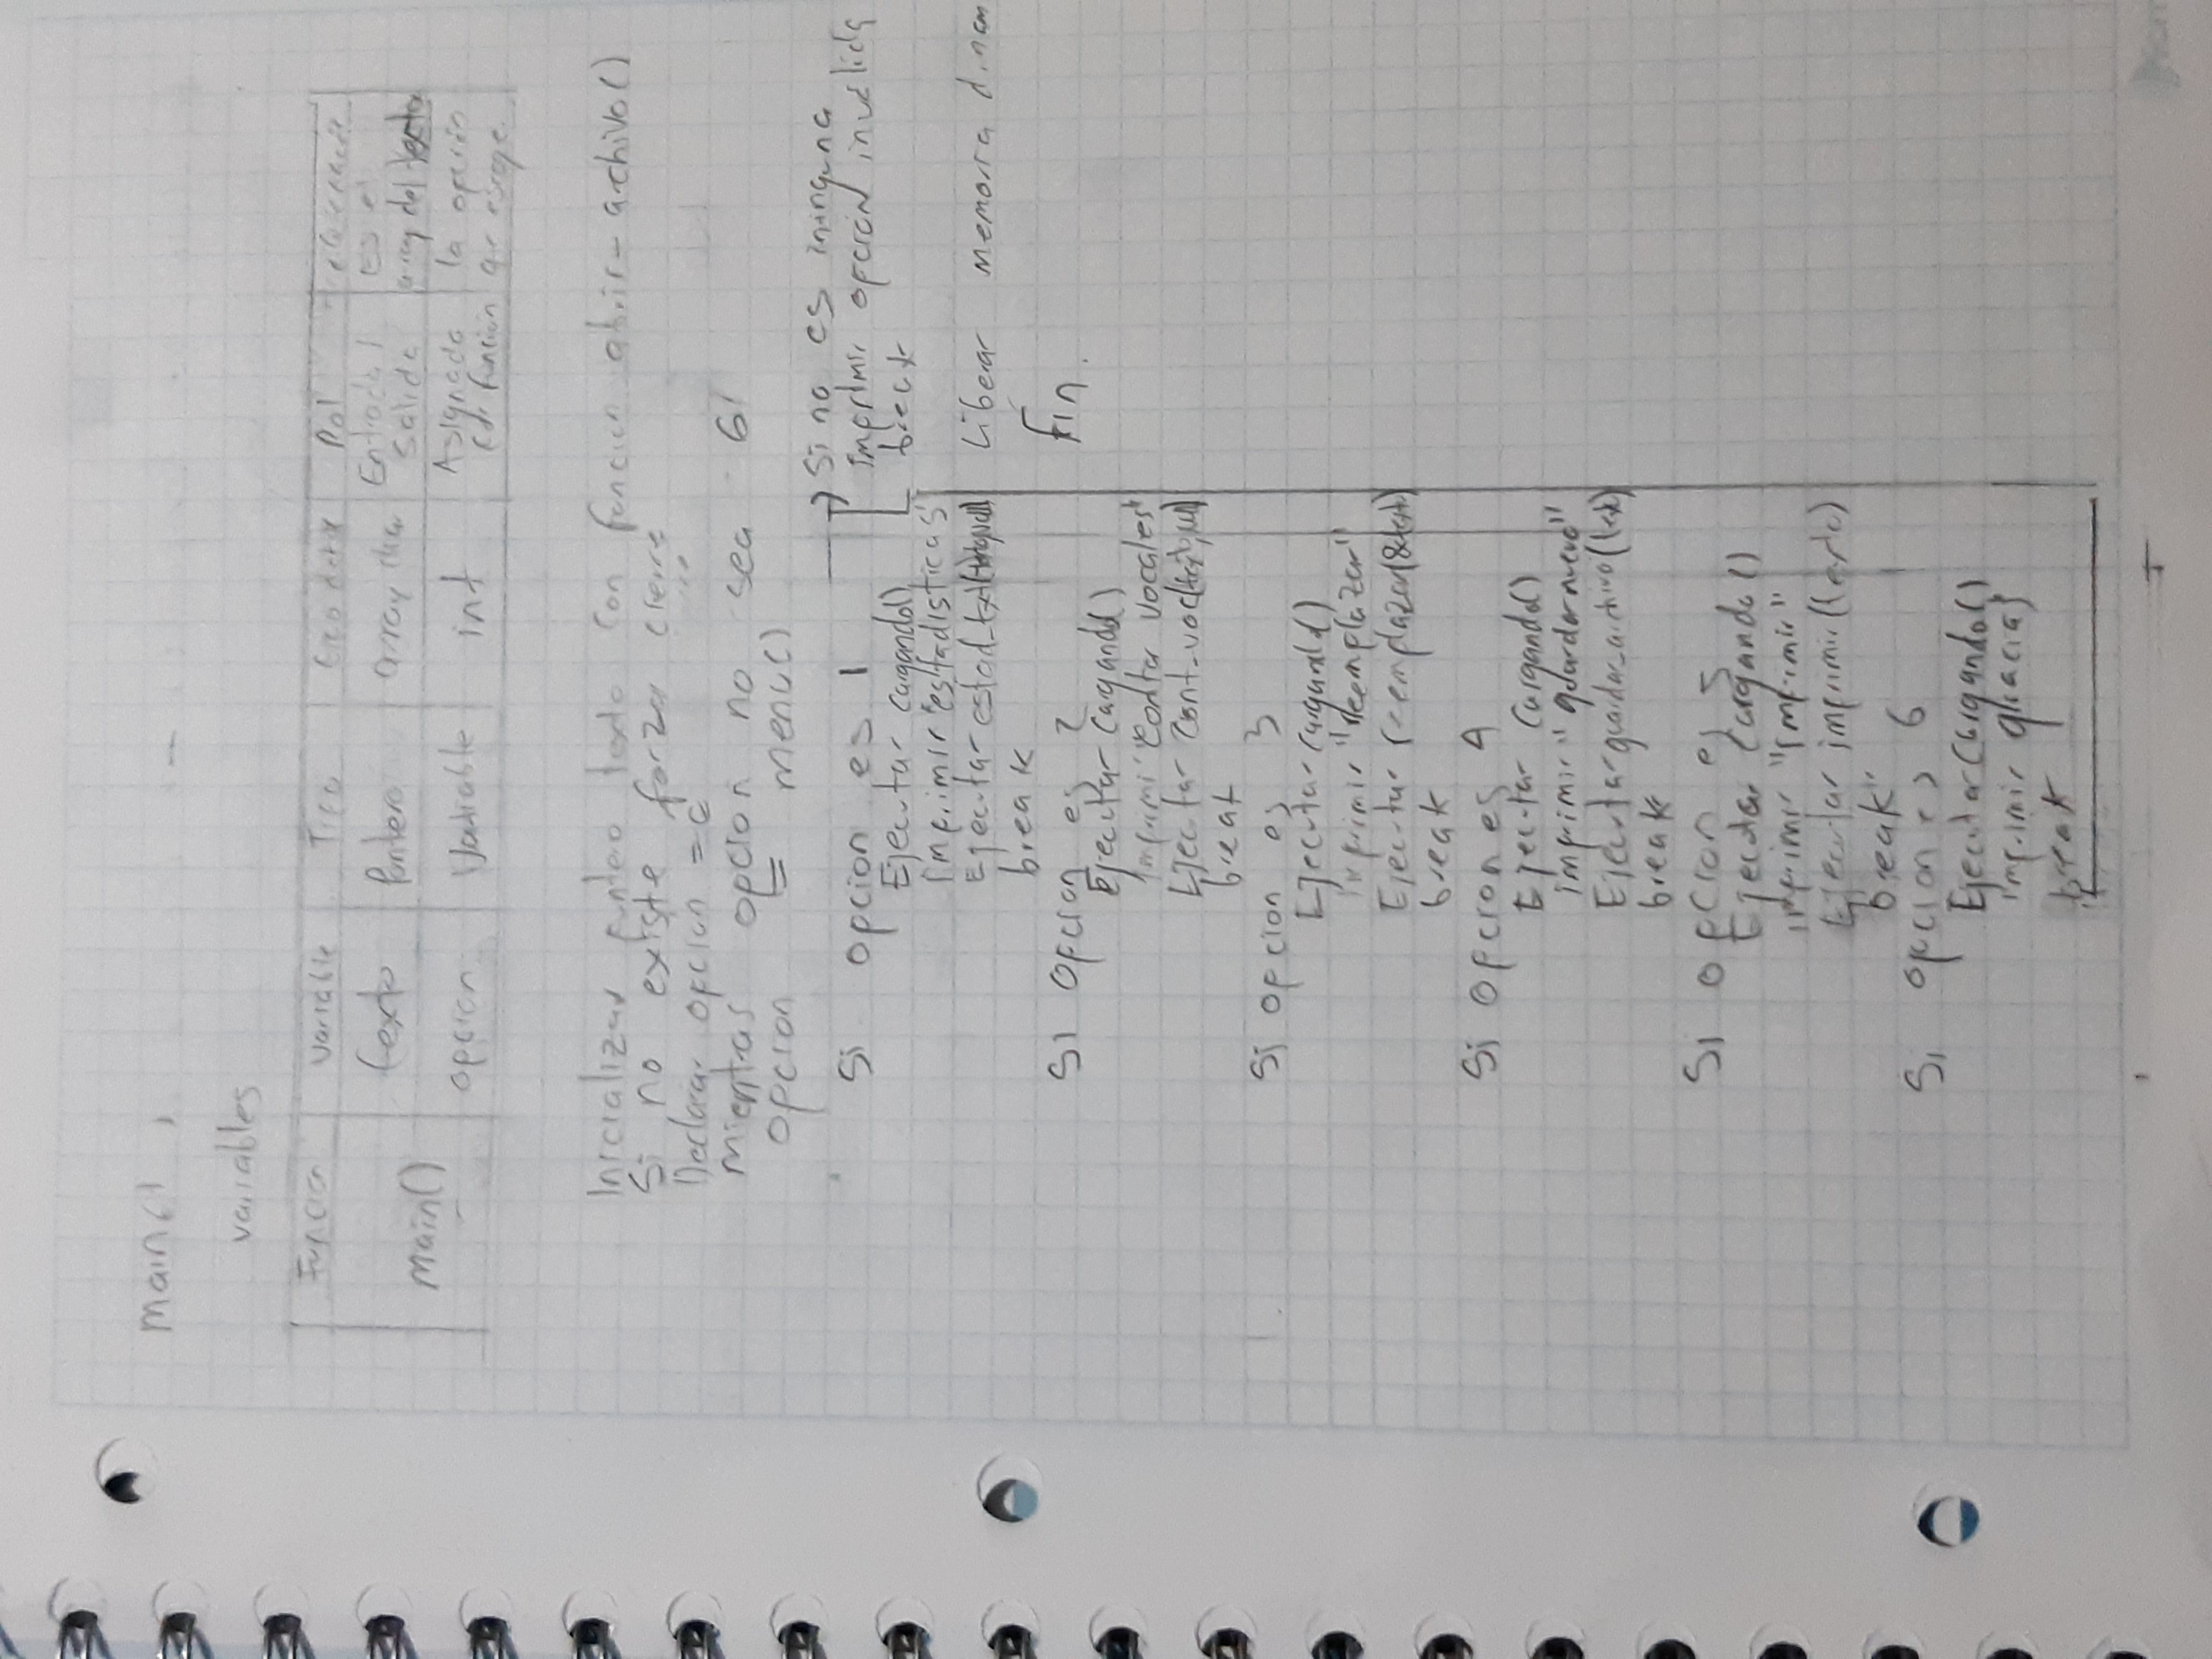 main()
variables
Función Variable Tipo tipo dato Rol
texto Puntero array char Entrada/ Salida Es el array del texto
main()
opcion Variable int Asignada por función la opción que escoge.
Inicializar puntero texto con funcion abrir-archivo()
Si no existe forzar cierre
Declarar opcion =
mientras opcion no sea 6
opcion = menu()
Si opcion es 1
Ejecutar cargando()
Imprimir "estadisticas"
Ejecutar estad_txt
break
Si opcion es 2
Ejecutar cargando()
Imprimir "contar vocales"
Ejecutar cont_voc
break
Si opcion es 3
Ejecutar cargando()
imprimir "reemplazar"
Ejecutar reemplazar(&texto)
break
Si opcion es 4
Ejecutar cargando()
imprimir "guardar nuevo"
Ejecutar guardar_archivo(text)
break
Si opcion es 5
Ejecutar cargando()
imprimir "Imprimir"
Ejecutar imprimir(texto)
break"
Si opcion es 6
Ejecutar cargando()
imprimir gracias
break
Si no es ninguna
imprimir opción invalida
break
Liberar memoria dinam
Fin.